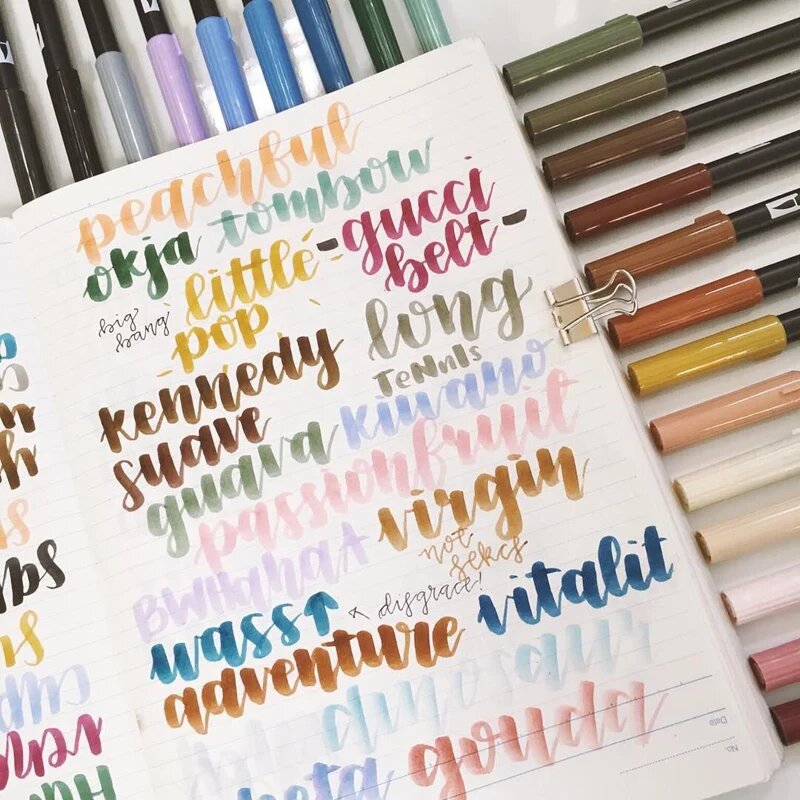 peachful
okja tombow
little pop
-gucci belt-
big bang
long
TeNNIs
kennedy
suave
kiwano
guava
passionfruit
virgin
not sekcs
BWHahahA
wass↑
← disgrace!
vitalit
adventure
dinosaur
gouda
No.
Date